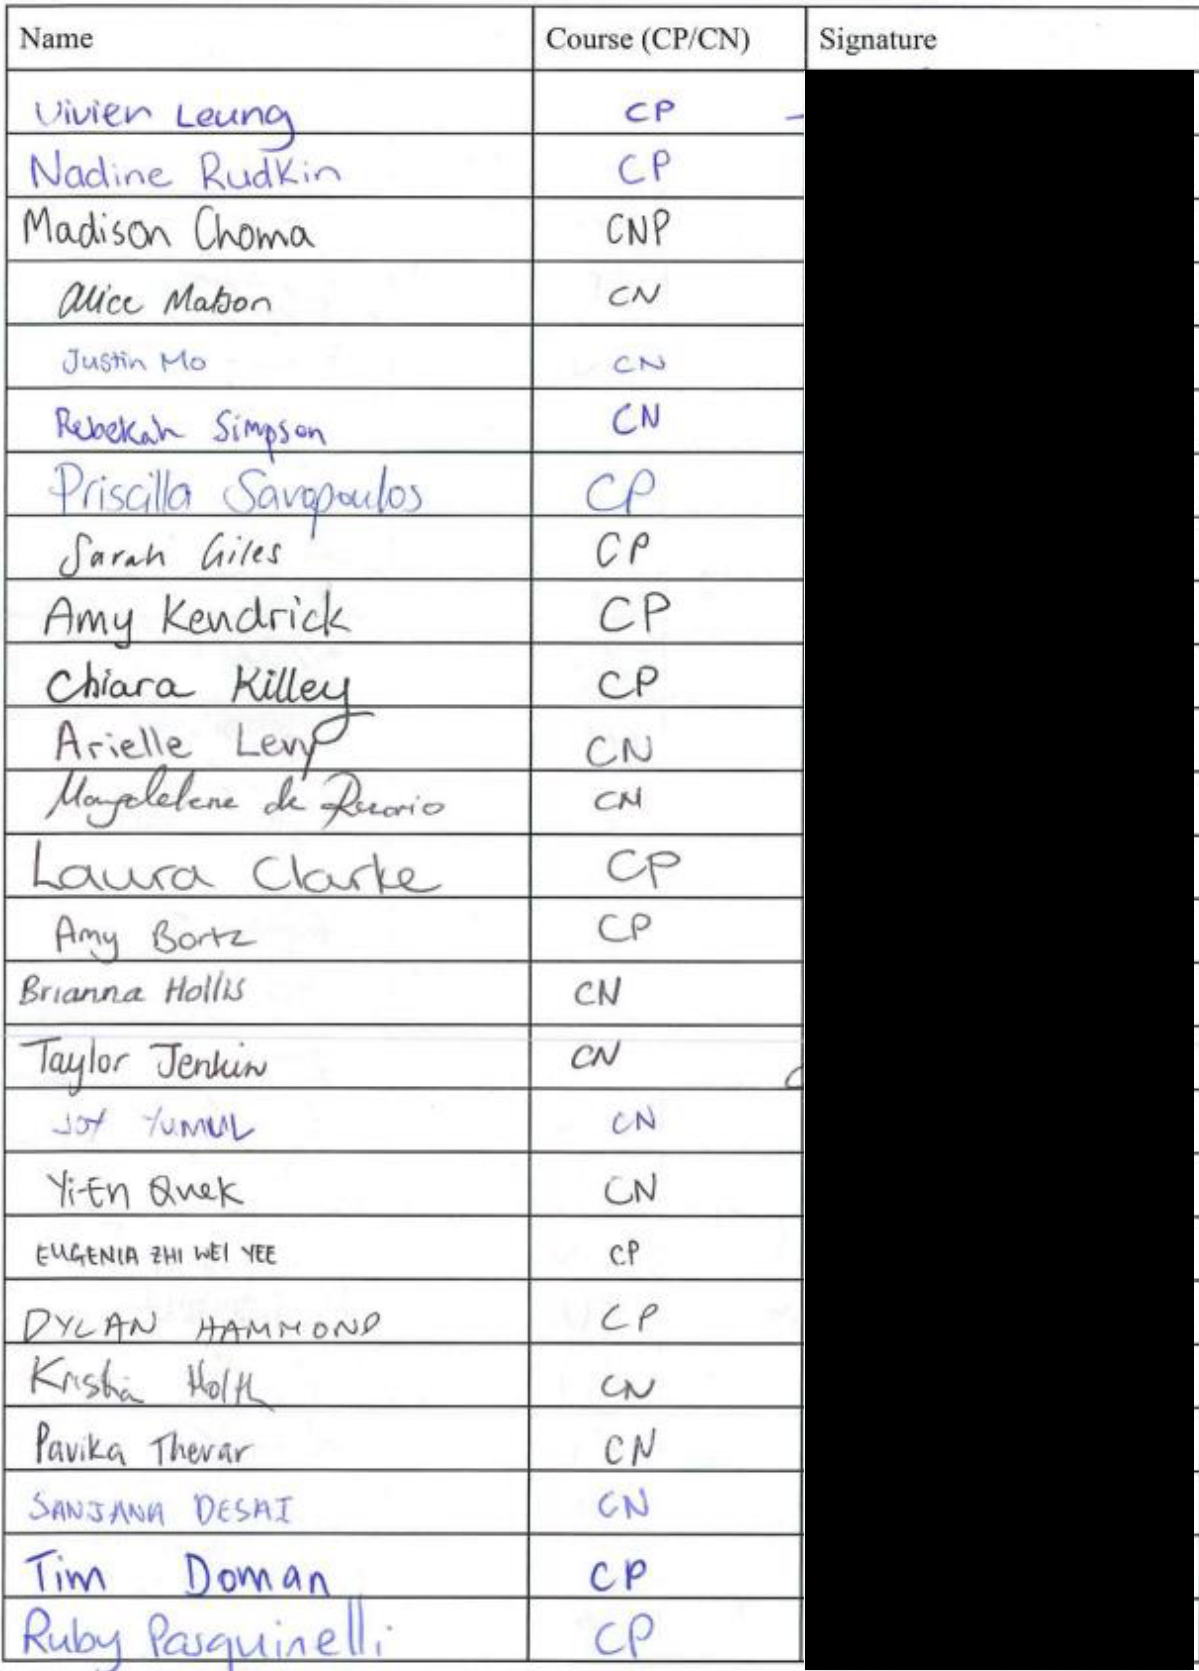 Name Course (CP/CN) Signature
Vivien Leung CP
Nadine Rudkin CP
Madison Choma CNP
Alice Matson CN
Justin Mo CN
Rebekah Simpson CN
Priscilla Savopoulos CP
Sarah Giles CP
Amy Kendrick CP
Chiara Killey CP
Arielle Levy CN
Magdelene de Rozario CN
Laura Clarke CP
Amy Bortz CP
Brianna Hollis CN
Taylor Jenkin CN
JOY YUMUL CN
Yi-En Quek CN
EUGENIA ZHI WEI YEE CP
DYLAN HAMMOND CP
Kristia Holth CN
Pavika Thevar CN
SANJANA DESAI CN
Tim Doman CP
Ruby Pasquinelli CP